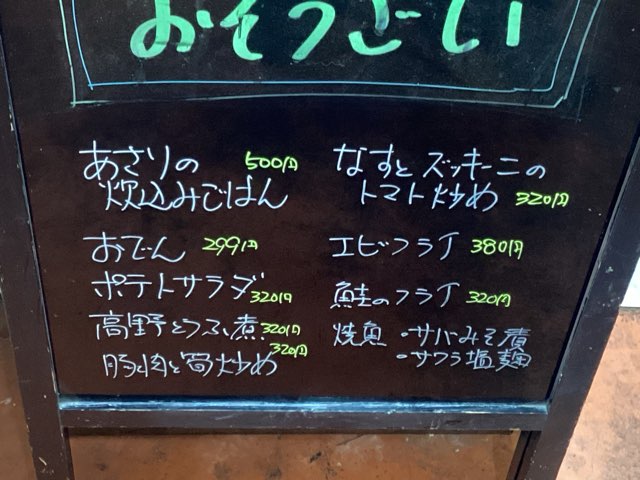 おそうざい
あさりの 500円
炊込みごはん
おでん 299円
ポテトサラダ 320円
高野とうふ煮 320円
豚肉と筍炒め 320円
なすとズッキーニの
トマト炒め 320円
エビフライ 380円
鮭のフライ 320円
焼魚 ・サバみそ漬
・サワラ塩麹